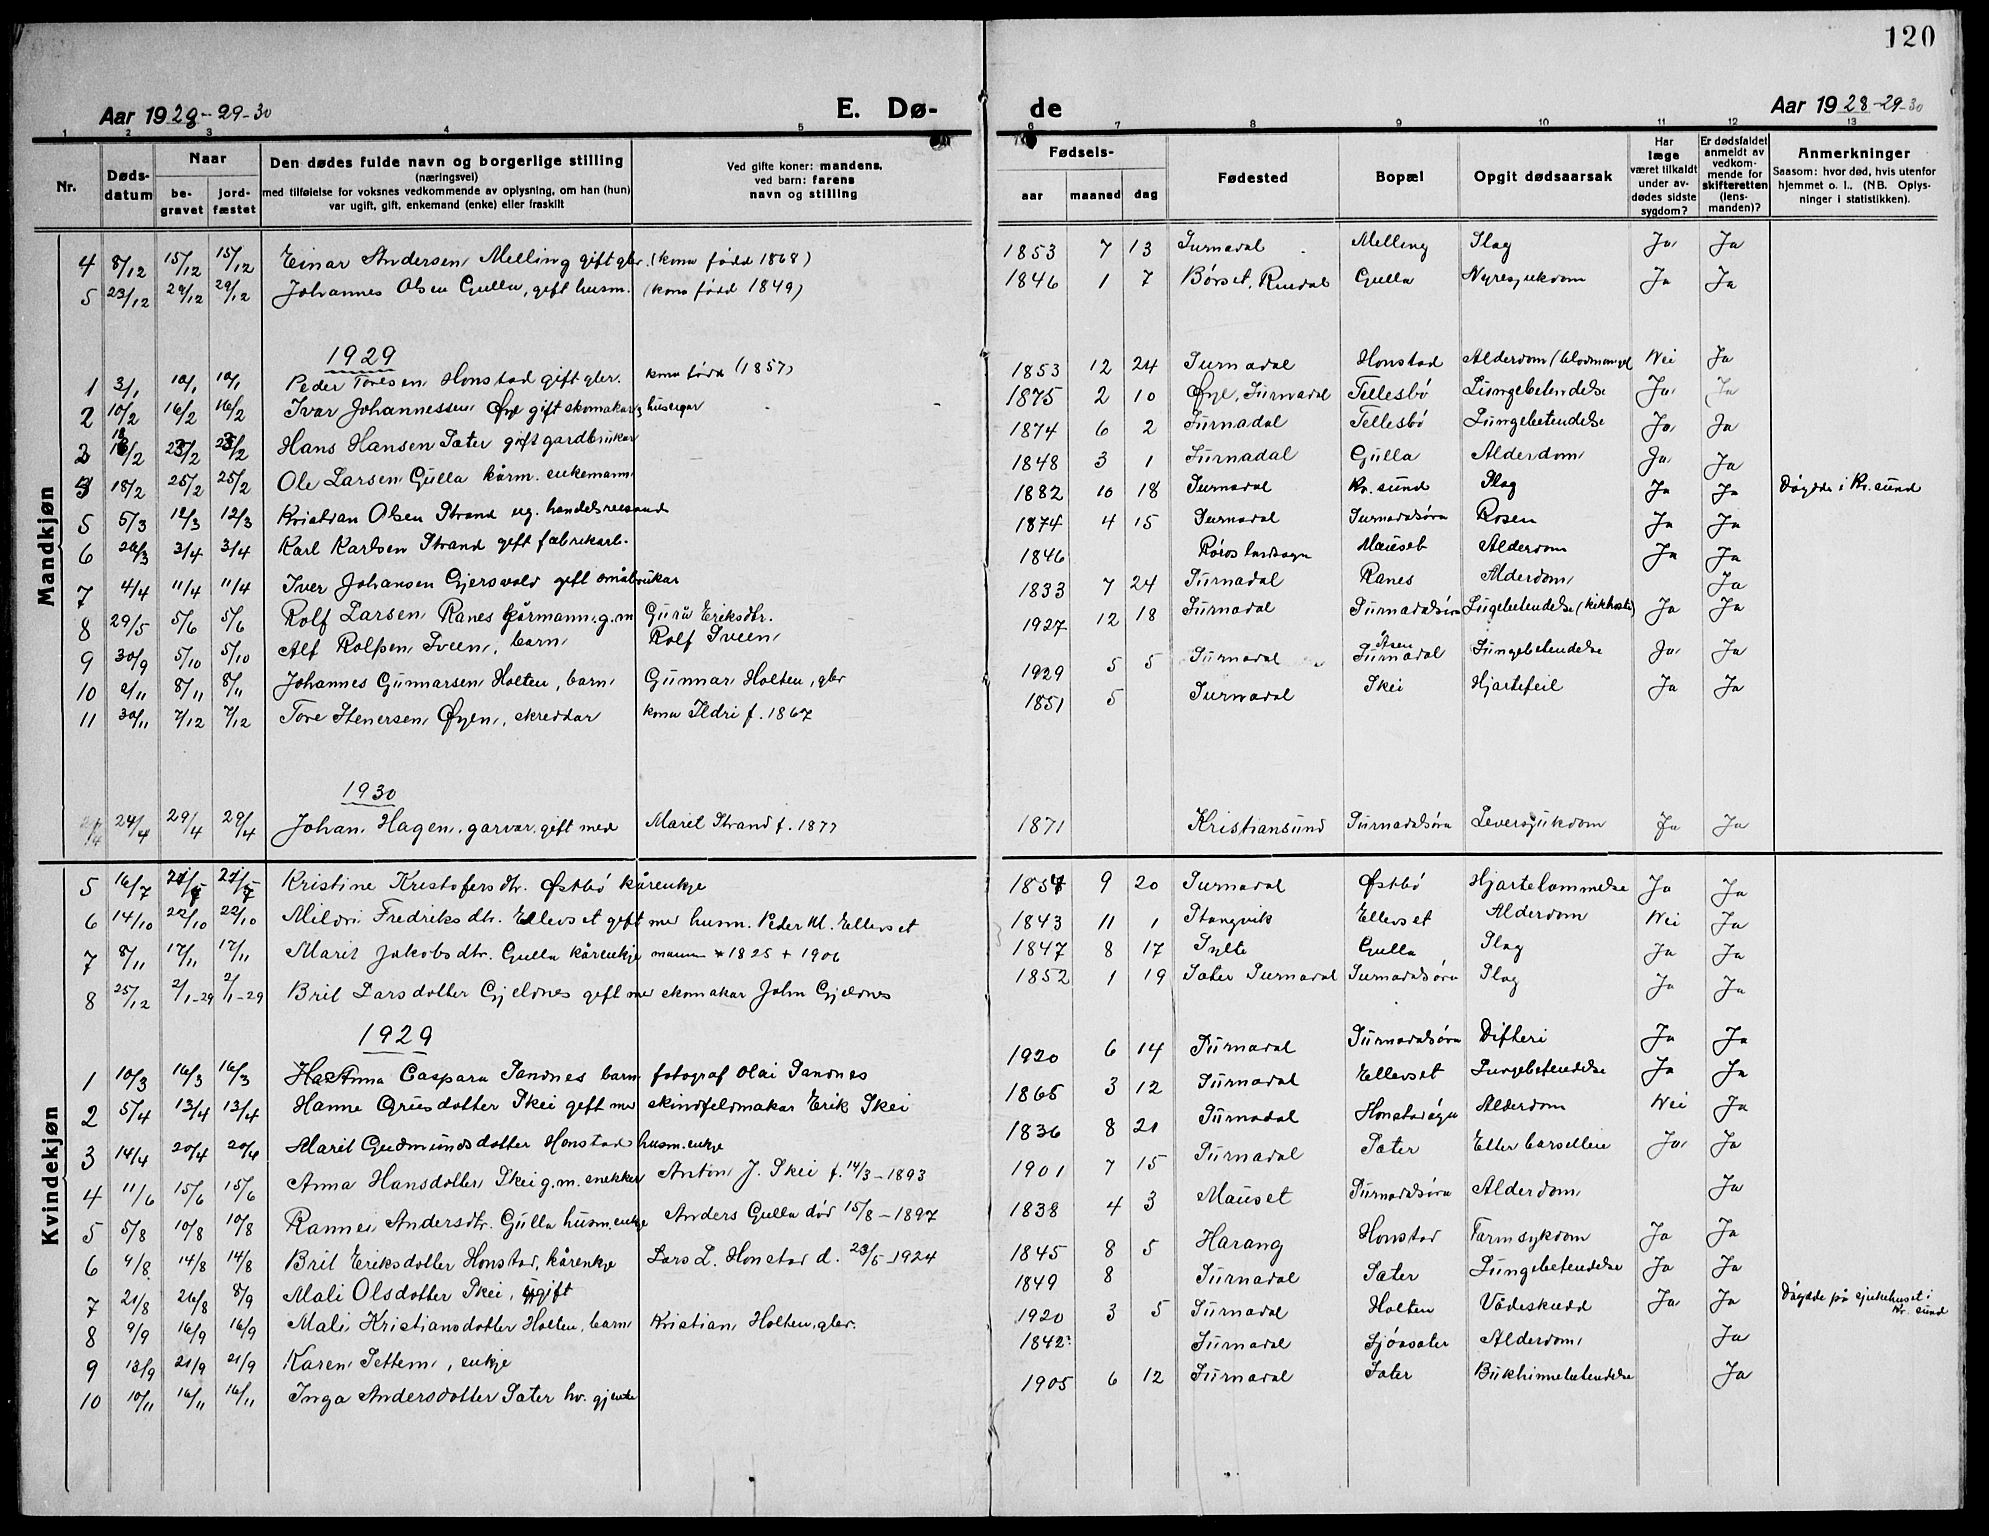 120
Aar 1928-29-30 E. Dø- de Aar 1928-29-30
1 2 3 4 5 6 7 8 9 10 11 12 13
Nr. Døds-datum Naar be-gravet jord-fæstet Den dødes fulde navn og borgerlige stilling (næringsvei) med tilføielse for voksnes vedkommende av oplysning, om han (hun) var ugift, gift, enkemand (enke) eller fraskilt Ved gifte koner: mandens, ved barn: farens navn og stilling Fødsels- aar maaned dag Fødested Bopæl Opgit dødsaarsak Har læge været tilkaldt under av-dødes sidste sygdom? Er dødsfaldet anmeldt av vedkom-mende for skifteretten (lens-manden)? Anmerkninger Saasom: hvor død, hvis utenfor hjemmet o. l.. (NB. Oplys-ninger i statistikken).
Mandkjøn
4 8/12 15/12 15/12 Einar Andersen Melling gift gbr. (kona fødd 1868) 1853 7 13 Surnadal Melling Slag Ja Ja
5 23/12 29/12 29/12 Johannes Olsen Gulla, gift husm. (kona fødd 1849) 1846 1 7 Børset, Rindal Gulla Nyresjukdom Ja Ja
1929
1 3/1 10/1 10/1 Peder Toresen Honstad gift gbr. kona fødd (1857) 1853 12 24 Surnadal Honstad Alderdom (blodmangel Nei Ja
2 10/2 16/2 16/2 Ivar Johannessen Øye gift skomakar, huseigar 1875 2 10 Øye, Surnadal Tellesbø Lungebetendelse Ja Ja
3 /2 23/2 23/2 Hans Hansen Sæter gift gardbrukar 1874 6 2 Surnadal Tellesbø Lungebetendelse Ja Ja
18/2 25/2 25/2 Ole Larsen Gulla kårm. enkemann 1848 3 1 Surnadal Gulla Alderdom Ja Ja
5 5/3 12/3 12/3 Kristian Olsen Strand ug. handelsreisande 1882 10 18 Surnadal Kr. sund Slag Ja Ja Døydde i Kr. sund
6 26/3 3/4 3/4 Karl Karlsen Strand gift fabrikarb. 1874 4 15 Surnadal Surnadalsøra Rosen Ja Ja
7 4/4 11/4 11/4 Iver Johansen Gjersvold gift småbrukar 1846 Røros landsogn Mauset Alderdom Ja Ja
8 29/5 5/6 5/6 Rolf Larsen Ranes kårmann g.m Guru Eriksdtr. 1833 7 24 Surnadal Ranes Alderdom Ja
9 30/9 5/10 5/10 Alf Rolfsen Sveen, barn Rolf Sveen 1927 12 18 Surnadal Surnadalsøra Lungebetendelse (kikhoste) Ja Ja
10 2/11 8/11 8/11 Johannes Gunnarsen Holten, barn Gunnar Holten, gbr 1929 5 5 Surnadal Åsen Surnadal Lungebetendelse Ja Ja
11 30/11 7/12 7/12 Tore Stenersen Øyen, skreddar kona Ildri f. 1867 1851 5 Surnadal Skei Hjartefeil Ja Ja
1930
24/4 29/4 29/4 Johan Hagen, garvar, gift med Marit Strand f. 1877 1871 Kristiansund Surnadalsøra Leversjukdom Ja Ja
Kvindekjøn
5 16/7 21/7 21/7 Kristine Kristofersdtr. Østbø kårenkje 1857 9 20 Surnadal Østbø Hjartelammelse Ja Ja
6 14/10 22/10 22/10 Mildri Fredriksdtr. Ellevset gift me husm. Peder M. Ellevset 1843 11 1 Stangvik Ellevset Alderdom Nei Ja
7 8/11 17/11 17/11 Marit Jakobsdtr. Gulla kårenkje mann * 1825 + 1906 1847 8 17 Sylte Gulla Slag Ja Ja
8 25/12 2/1-29 2/1-29 Brit Larsdotter Gjeldnes gift me skomakar John Gjeldnes 1852 1 19 Sæter Surnadal Surnadalsøra Slag Ja Ja
1929
1 10/3 16/3 16/3 Anna Caspara Sandnes barn fotograf Olai Sandnes 1920 6 14 Surnadal Surnadalsøra Difteri Ja Ja
2 5/4 13/4 13/4 Hanne Grusdotter Skei gift me skindfeldmakar Erik Skei 1865 3 12 Surnadal Ellevset Lungebetendelse Ja Ja
3 14/4 20/4 20/4 Marit Gudmundsdotter Honstad husm.enkje 1836 8 21 Surnadal Alderdom Nei Ja
4 11/6 15/6 15/6 Anna Hansdotter Skei g.m. snekker Anton J. Skei f. 14/3-1893 1901 7 15 Surnadal Sæter Etter barselleie Ja Ja
5 5/8 10/8 10/8 Rannei Andersdtr. Gulla husm.enkje Anders Gulla død 15/8-1897 1838 4 3 Mauset Surnadalsøra Alderdom Ja
6 9/8 14/8 14/8 Brit Eriksdotter Honstad, kårenkje Lars L. Honstad d. 23/5-1924 1845 8 5 Harang Honstad Tarmsykdom Ja Ja
7 21/8 26/8 8/9 Mali Olsdotter Skei, ugift 1849 8 Surnadal Sæter Lungebetendelse Ja Ja
8 9/9 16/9 16/9 Mali Kristiansdotter Holten, barn Kristian Holten, gbr. 1920 3 5 Surnadal Holten Vådeskudd Ja Ja Døydde på sjukehuset i Kr. sund
9 13/9 21/9 21/9 Karen Settem, enkje 1842 Surnadal Sjøasæter Alderdom Ja
10 10/11 16/11 16/11 Inga Andersdotter Sæter hv. gjente 1905 6 12 Surnadal Sæter Bukhinnebetendelse Ja